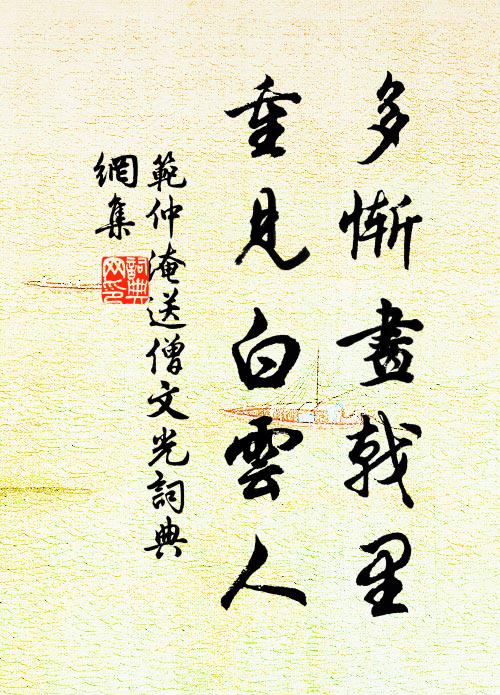 多慚畫戟里
重見白雲人
範仲淹送僧文光詞典
網集
詞典網印